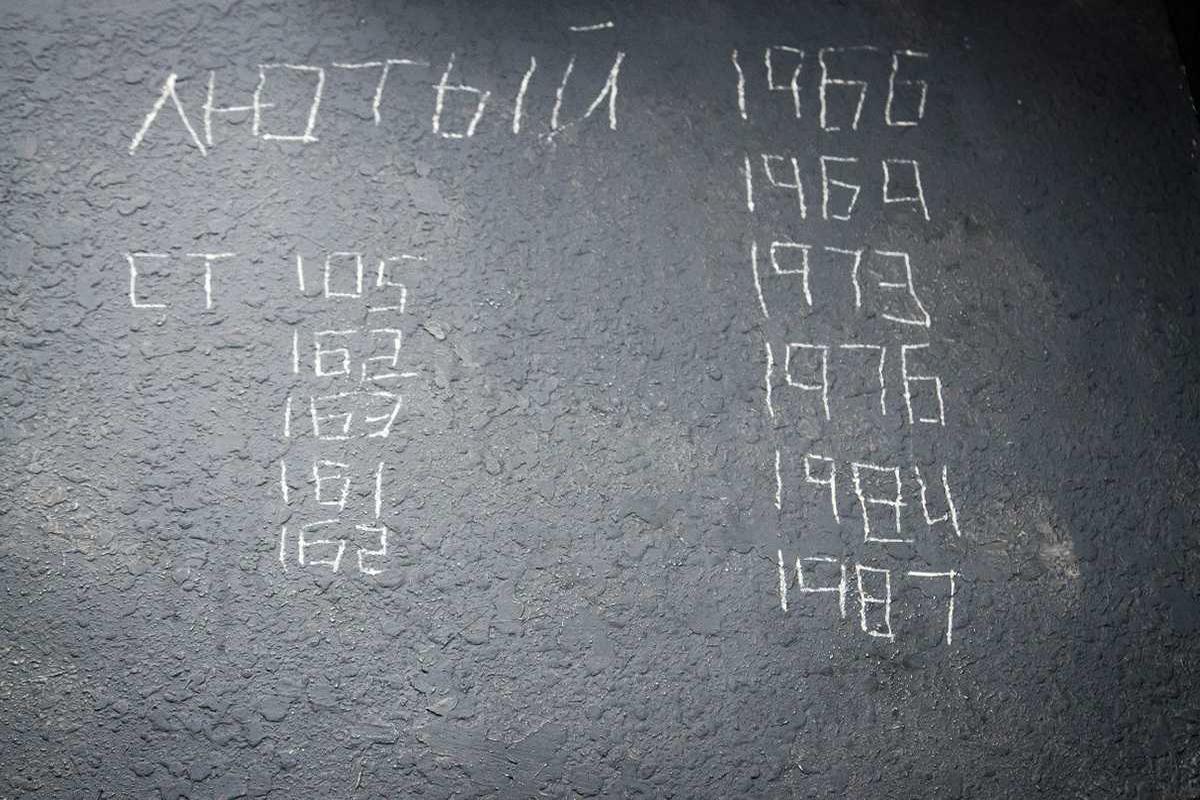 ЛЮТЫЙ
СТ 105
162
163
161
162
1966
1969
1973
1976
1984
1987